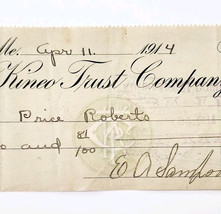 Me. Apr 11 1914
Kineo Trust Company
Price Roberts
o and 81/100
E A Sampso